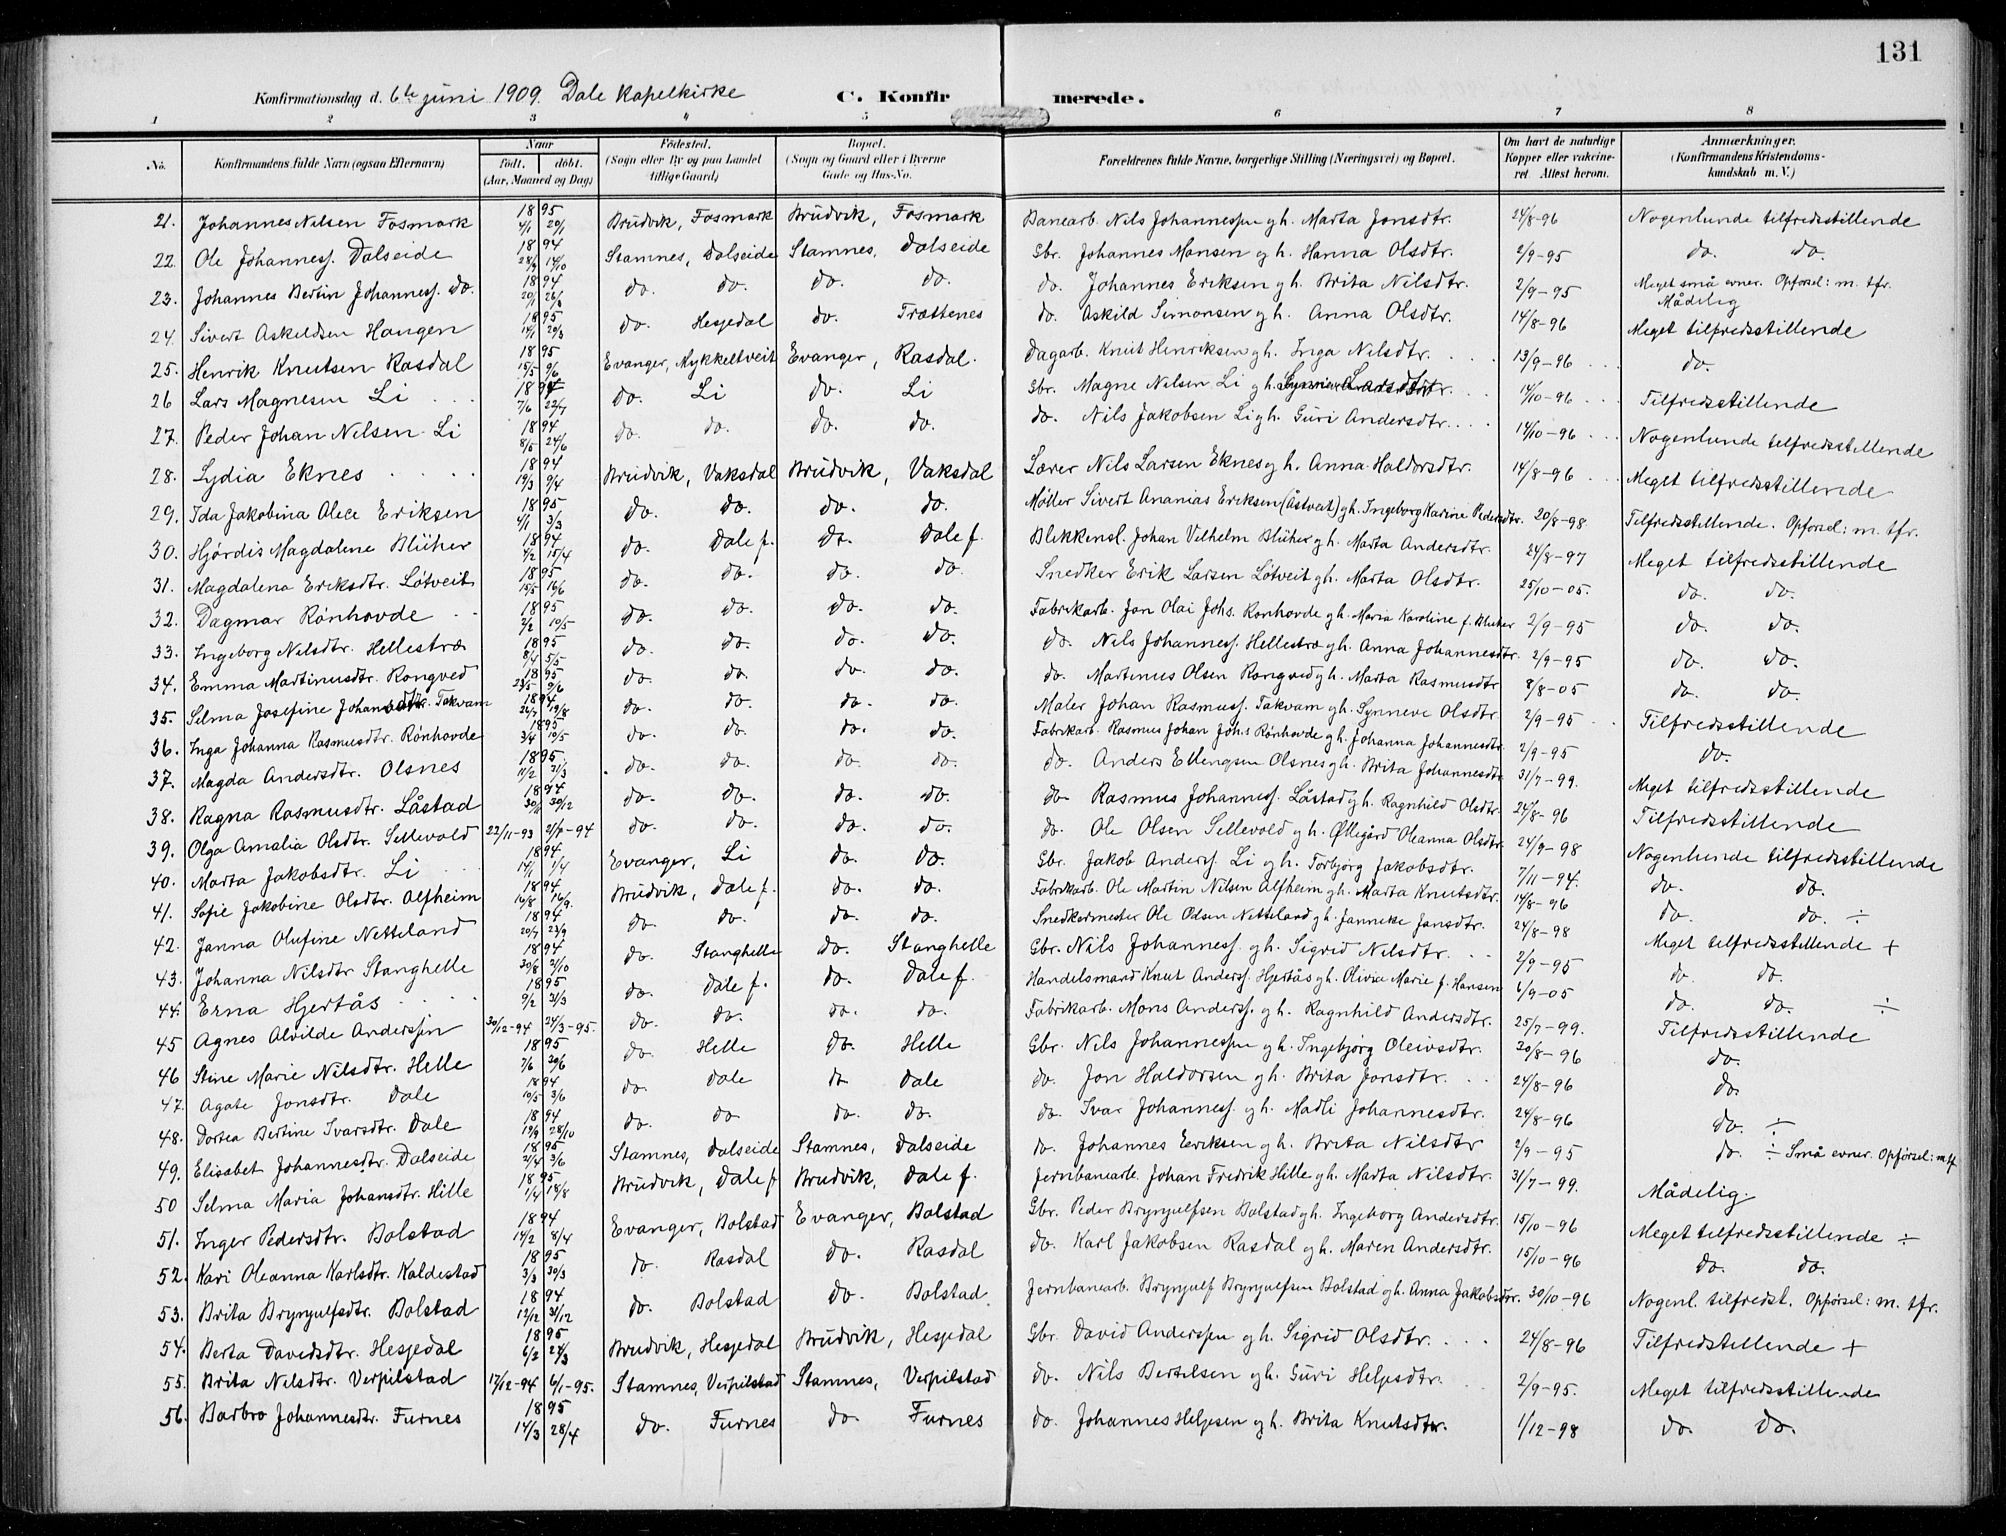 131
Konfirmationsdag d. 6te juni 1909. Dale Kapelkirke C. Konfirmerede.
1 2 3 4 5 6 7 8
No. Konfirmandens fulde Navn (ogsaa Efternavn) Naar født. døbt. (Aar, Maaned og Dag) Fødested. (Sogn eller By og paa Landet tillige Gaard) Bopæl. (Sogn og Gaard eller i Byerne Gade og Hus-No. Forældrenes fulde Navne, borgerlige Stilling (Næringsvei) og Bopæl. Om havt de naturlige Kopper eller vakcineret. Attest herom. Anmærkninger. (Konfirmandens Kristendomskundskab m. V.)
21. Johannes Nilsen Fosmark 1895 4/1 20/1 Brudvik, Fosmark Brudvik, Fosmark Banearb. Nils Johannessen gh. Marta Jonsdtr. 24/8-96 Nogenlunde tilfredsstillende
22. Ole Johanness. Dalseide 1894 14/10 Stamnes, Dalseide Stamnes, Dalseide Gbr. Johannes Monsen gh. Hanna Olsdtr. 2/9-95 do. do.
23. Johannes Bertin Johanness. do. 1894 do. do. do. do. do. Johannes Eriksen gh. Brita Nilsdtr. 2/9-95 Meget små evner. Opførsel: m. tfr. Mådelig
24. Sivert Askildsen Haugen 1895 do. Hesjedal do. Trættenes do. Askild Simonsen gh. Anna Olsdtr. 14/8-96 Meget tilfredsstillende
25. Henrik Knutsen Rasdal 1895 15/5 9/6 Evanger, Mykkeltveit Evanger, Rasdal. Dagarb. Knut Henriksen gh. Inga Nilsdtr. 13/9-96 do.
26 Lars Magnesen Li 1894 7/6 22/7 do. Li do. Li Gbr. Magne Nilsen Li gh. Synnive Larsdtr. 14/10-96 Tilfredsstillende
27. Peder Johan Nilsen Li 1894 8/5 24/6 do. do. do. do. do. Nils Jakobsen Li gh. Guri Andersdtr. 14/10-96 Nogenlunde tilfredsstillende
28. Lydia Eknes 1894 19/3 9/4 Brudvik, Vaksdal Brudvik, Vaksdal Lærer Nils Larsen Eknes gh. Anna Haldorsdtr. 14/8-96 Meget tilfredsstillende
29. Ida Jakobina Alice Eriksen 1895 4/1 3/3 do. do. do. do. Møller Sivert Ananias Eriksen (Åstveit) gh. Ingeborg Karine Pedersdtr. 20/8-98 Tilfredsstillende. Opførsel: m. tfr.
30. Hjørdis Magdalene Blüher 1894 4/2 15/4 do. Dale f. do. Dale f. Blikkensl. Johan Vilhelm Blüher gh. Marta Andersdtr. 24/8-97 Meget tilfredsstillende
31. Magdalena Eriksdtr. Løtveit 1895 15/5 16/6 do. do. do. do. Snedker Erik Larsen Løtveit gh. Marta Olsdtr. 25/10-05. do. do.
32. Dagmar Rønhovde 1895 2/2 10/5 do. do. do. do. Fabrikarb. Jon Olai Johs. Rønhovde gh. Maria Karoline f. Blüher 2/9-95 do. do.
33. Ingeborg Nilsdtr. Hellestræ 1895 8/4 5/5 do. do. do. do. do. Nils Johanness. Hellestræ gh. Anna Johannesdtr. 2/9-95 do. do.
34. Emma Martinusdtr. Rongved 1895 23/5 9/6 do. do. do. do. do. Martinus Olsen Rongved gh. Marta Rasmusdtr 8/8-05 do. do.
35. Selma Josefine Johansdtr. Takvam 1894 26/7 19/8 do. do. do. do. Maler Johan Rasmuss. Takvam gh. Synneve Olsdtr. 2/9-95 Tilfredsstillende
36. Inga Johanna Rasmusdtr. Rønhovde 1895 3/4 10/5 do. do. do. do. Fabrikarb. Rasmus Johan Johs Rønhovde gh. Johanna Johannesdtr. 2/9-95 do.
37. Magda Andersdtr. Olsnes 1895 11/2 31/3 do. do. do. do. do. Anders Ellengsen Olsnes gh. Brita Johannesdtr. 31/7-99. Meget tilfredsstillende
38. Ragna Rasmusdtr. Låstad 1894 30/11 30/12 do. do. do. do. do. Rasmus Johanness. Låstad gh. Ragnhild Olsdtr. 24/8-96 Tilfredsstillende
39. Olga Amalia Olsdtr. Sellevold 22/11-93 2/9-94 do. do. do. do. do. Ole Olsen Sellevold gh. Øllegård Oleanna Olsdtr. 24/9-98 Nogenlunde tilfredsstillende
40. Marta Jakobsdtr. Li 1894 14/1 1/4 Evanger, Li do. do. Gbr. Jakob Anderss. Li gh. Torbjørg Jakobsdtr. 7/11-94. do. do.
41. Sofie Jakobine Olsdtr. Alfheim 1894 16/8 16/9. Brudvik, Dale f. do. do. Fabrikarb. Ole Martin Nilsen Alfheim gh. Marta Knutsdtr. 14/8-96 do. do. ÷
42. Janna Olufine Netteland 1894 20/7 23/9 do. do. do. do. Snedkermester Ole Olsen Netteland gh. Janneke Jansdtr. 24/8-98 Meget tilfredsstillende +
43. Johanna Nilsdtr Stanghelle 1894 30/8 2/10 do. Stanghelle do. Stanghelle Gbr. Nils Johanness. gh. Sigrid Nilsdtr. 2/9-95 do. do.
44. Erna Hjertås 1895 9/2 31/3 do. Dale f. do. Dale f. Handelsmand Knut Anderss. Hjertås gh. Olivia Marie f. Hansen 6/9-05 do. do. ÷
45 Agnes Alvilde Anderssen 30/12-94 24/3-95. do. do. do. do. Fabrikarb. Mons Anderss. gh. Ragnhild Andersdtr. 25/7-99. Tilfredsstillende
46 Stine Marie Nilsdtr. Helle 1895 7/6 30/6 do. Helle do. Helle Gbr. Nils Johannessen gh. Ingebjørg Oleivsdtr. 20/8-96 do.
47. Agate Jonsdtr. Dale 1894 10/5 3/6 do. Dale do Dale do. Jon Haldorsen gh. Brita Jonsdtr. 24/8-96 do.
48. Dortea Bertine Ivarsdtr. Dale 1894 19/9 28/10 do. do. do. do. do. Ivar Johanness. gh. Madli Johannesdtr. 24/8-96 do. ÷
49. Elisabet Johannesdtr. Dalseide 1895 2/4 3/6 Stamnes, Dalseide Stamnes, Dalseide do. Johannes Eeriksen gh. Brita Nilsdtr 2/9-95 do. ÷ Små evner. Opførsel: m tf
50 Selma Maria Johansdtr. Hille 1895 1/4 18/8 Brudvik, Dale f Brudvik, Dale f. Jernbanearb. Johan Fredrik Hille gh. Marta Nilsdtr. 31/7-99. Mådelig.
51. Inger Pedersdtr. Bolstad 1894 14/2 8/4 Evanger, Bolstad Evanger, Bolstad Gbr. Peder Brynjulfsen Bolstad gh. Ingeborg Andersdtr. 15/10-96 Meget tilfredsstillende ÷
52. Kari Oleanna Karlsdtr. Kaldestad 1895 3/3 30/3 do. Rasdal do. Rasdal do. Karl Jakobsen Rasdal gh. Maren Andersdtr. 15/10-96 do. do.
53. Brita Brynjulfsdtr. Bolstad 1894 12/12 31/12 do. Bolstad do. Bolstad Jernbanearb. Brynjulf Brynjulfsen Bolstad gh. Anna Jakobsdtr. 30/10-96 Nogenl. tilfredst. Opførsel: m. tfr.
54. Berta Davidsdtr. Hesjedal 1895 6/2 24/3 Brudvik, Hesjedal Brudvik, Hesjedal Gbr. David Anderssen gh. Sigrid Olsdtr. 24/8-96 Tilfredstellende +
55. Brita Nilsdtr. Verpilstad 17/12-94 6/1-95. Stamnes, Verpilstad Stamnes, Verpilstad do. Nils Bertelsen gh. Guri Helgesdtr. 2/9-95. Meget tilfredsstillende
56. Barbro Johannesdtr. Furnes 1895 14/3 28/4 do. Furnes do. Furnes do. Johannes Helgesen gh. Brita Knutsdtr. 1/12-98 do. do.